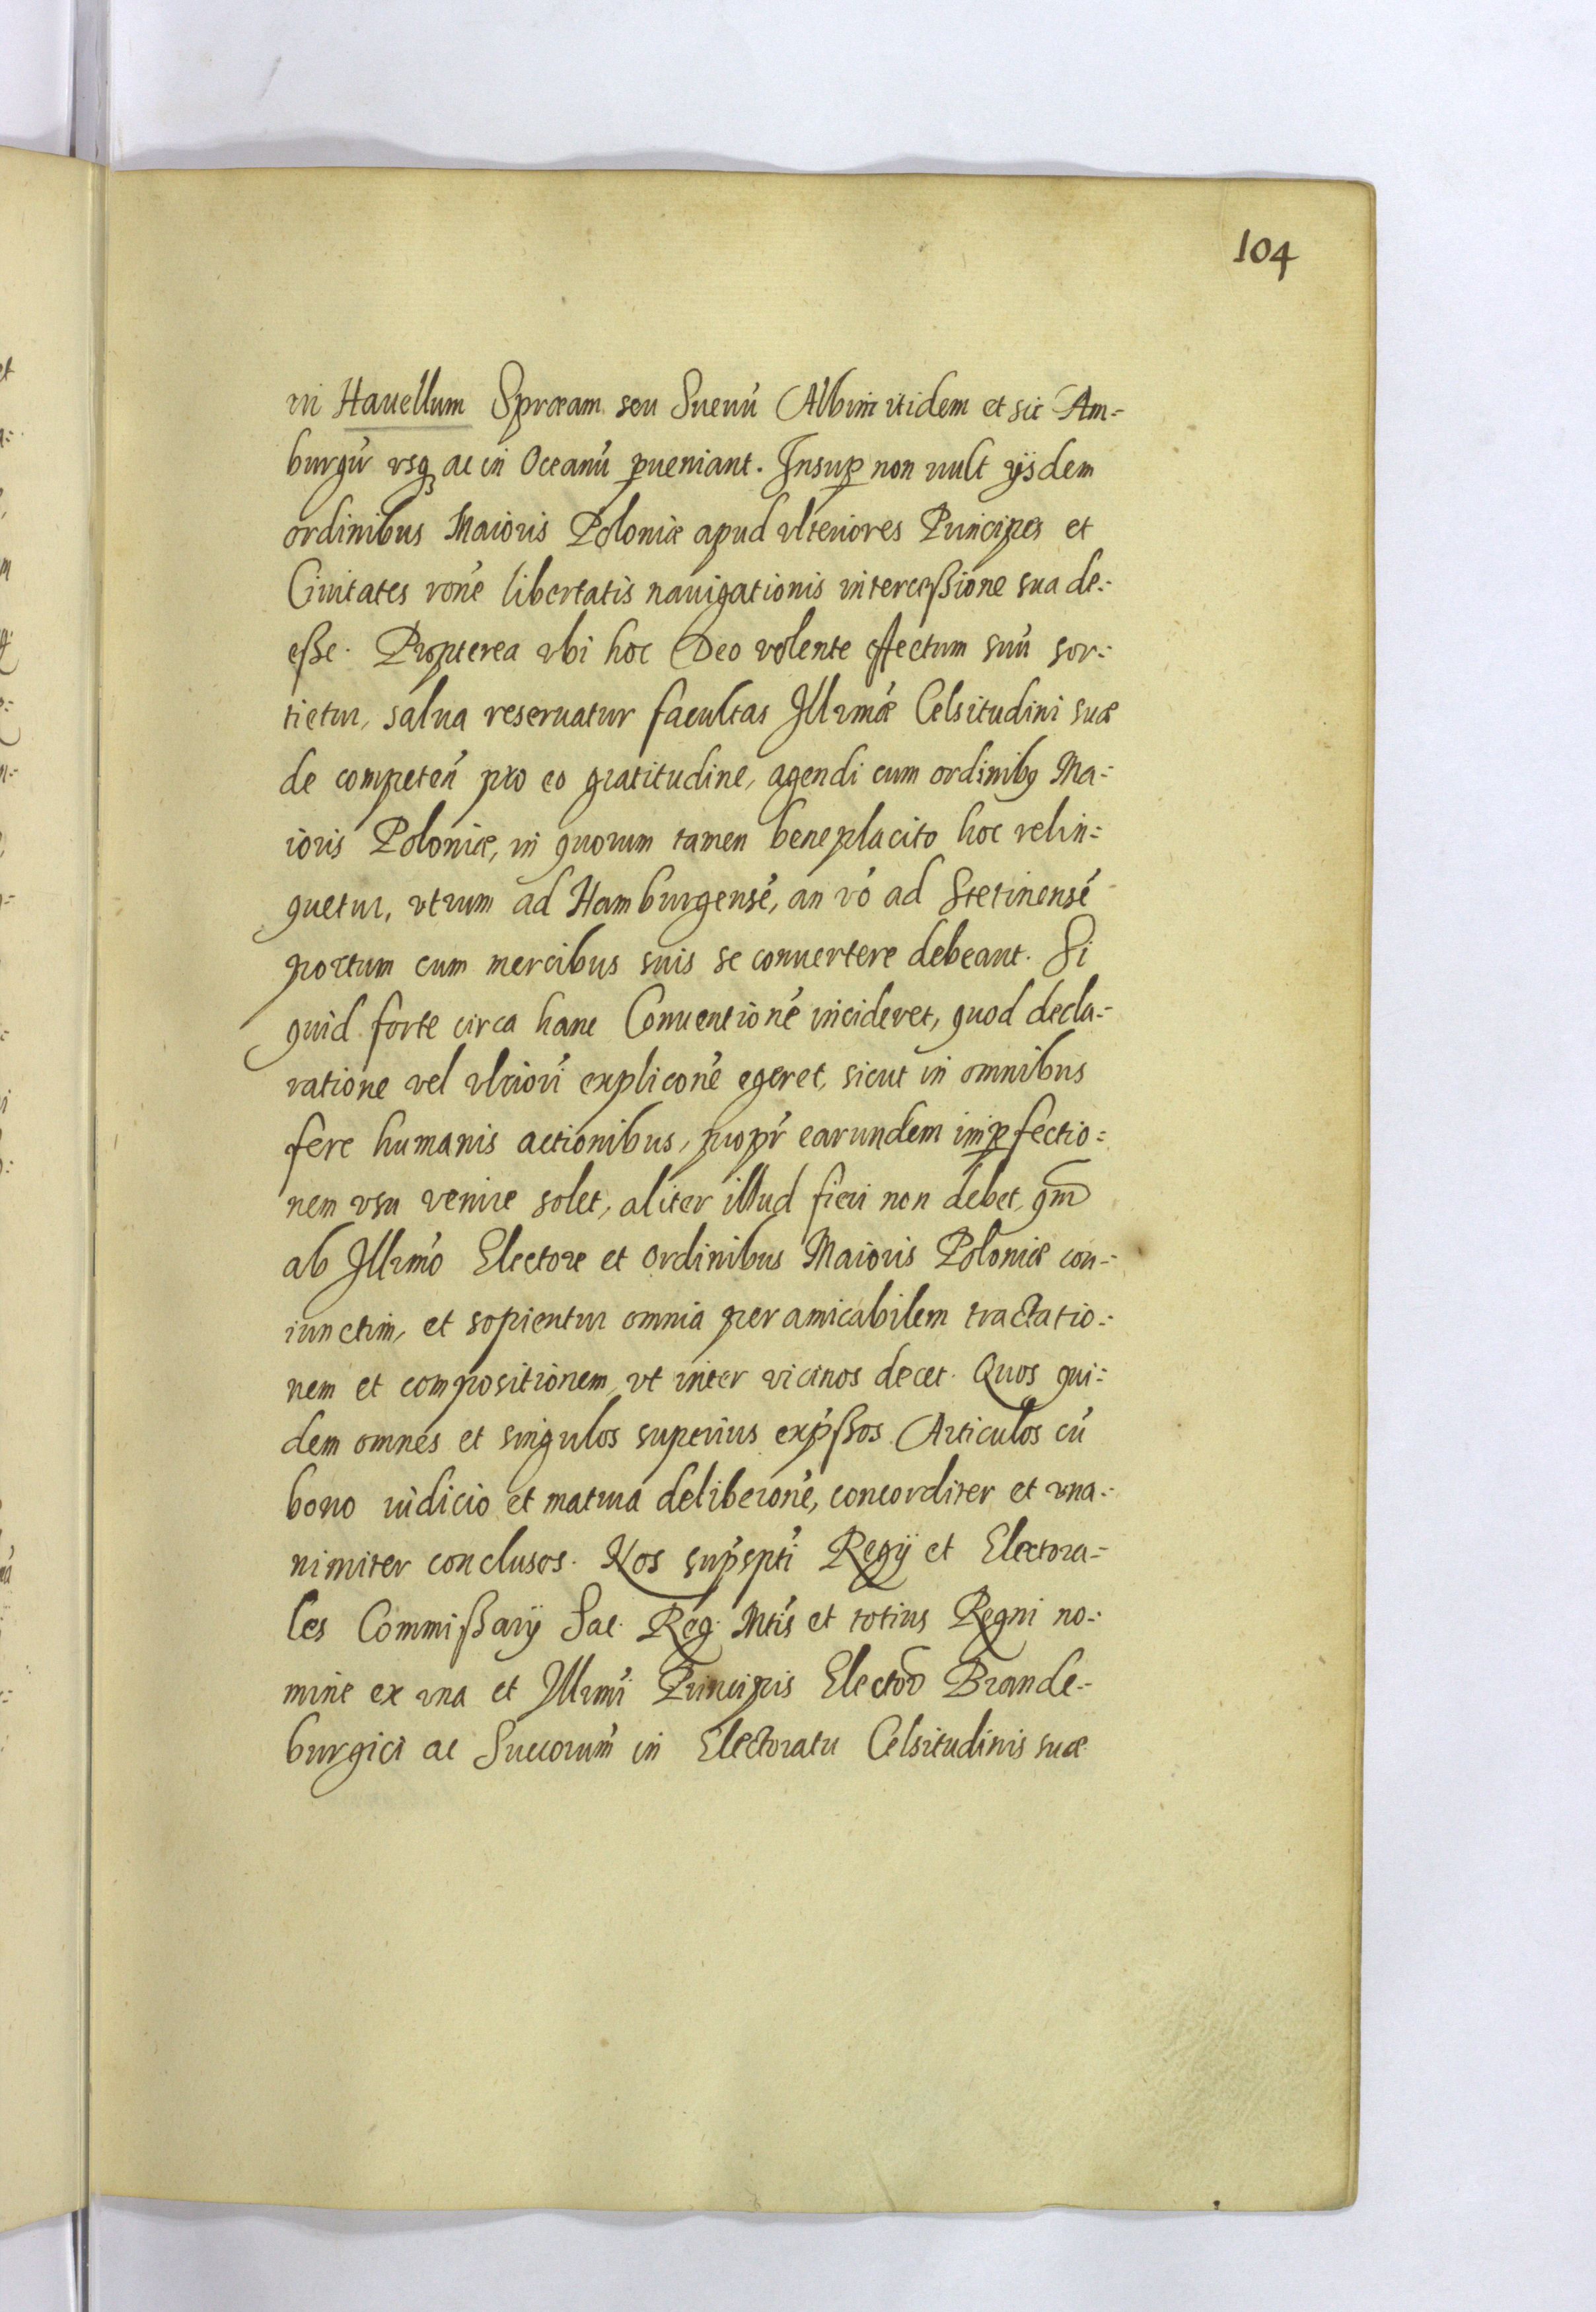 104
in Hauellum Spræam seu Sueuú Albim itidem et sic Am=
burgú usq; ac in Oceanú ꝑueniant. Insuꝑ non uult ijsdem
ordinibus Maioris Poloniæ apud vlteriores Principes et
Ciuitates roné libertatis nauigationis interceßione sua de=
eße. Propterea vbi hoc Deo volente effectum suú sor=
tietur, salua reseruatur facultas Illrmæ Celsitudini suæ
de competeń pro eo gratitudine, agendi cum ordinibꝫ Ma=
ioris Poloniæ, in quorum tamen beneplacito hoc relin=
quetur, vtrum ad Hamburgensé, an vó ad Stetinensé
portum cum mercibus suis se conuertere debeant. Si
quid forte circa hanc Conuentioné incideret, quod decla=
ratione vel vlriori expliconé egeret, sicut in omnibus
fere humanis actionibus, propŕ earundem imꝑfectio=
nem vsu venire solet, aliter illud fieri non debet, qm̄
ab Illrmó Electore et ordinibus Maioris Poloniæ con=
iunctim, et sopientur omnia per amicabilem tractatio=
nem et compositionem, vt inter vicinos decet. Quos qui=
dem omnes et singulos superius expŕßos Articulos cú
bono iudicio et matura deliberoné, concorditer et vna=
nimiter conclusos. Nos supŕsptí Regij et Electora=
les Commißarij Sac. Reg. Mtís et totius Regni no=
mine ex vna et Illrmí Principis Elector̄ Brande=
burgici ac Succorum̄ in Electoratu Celsitudinis suæ